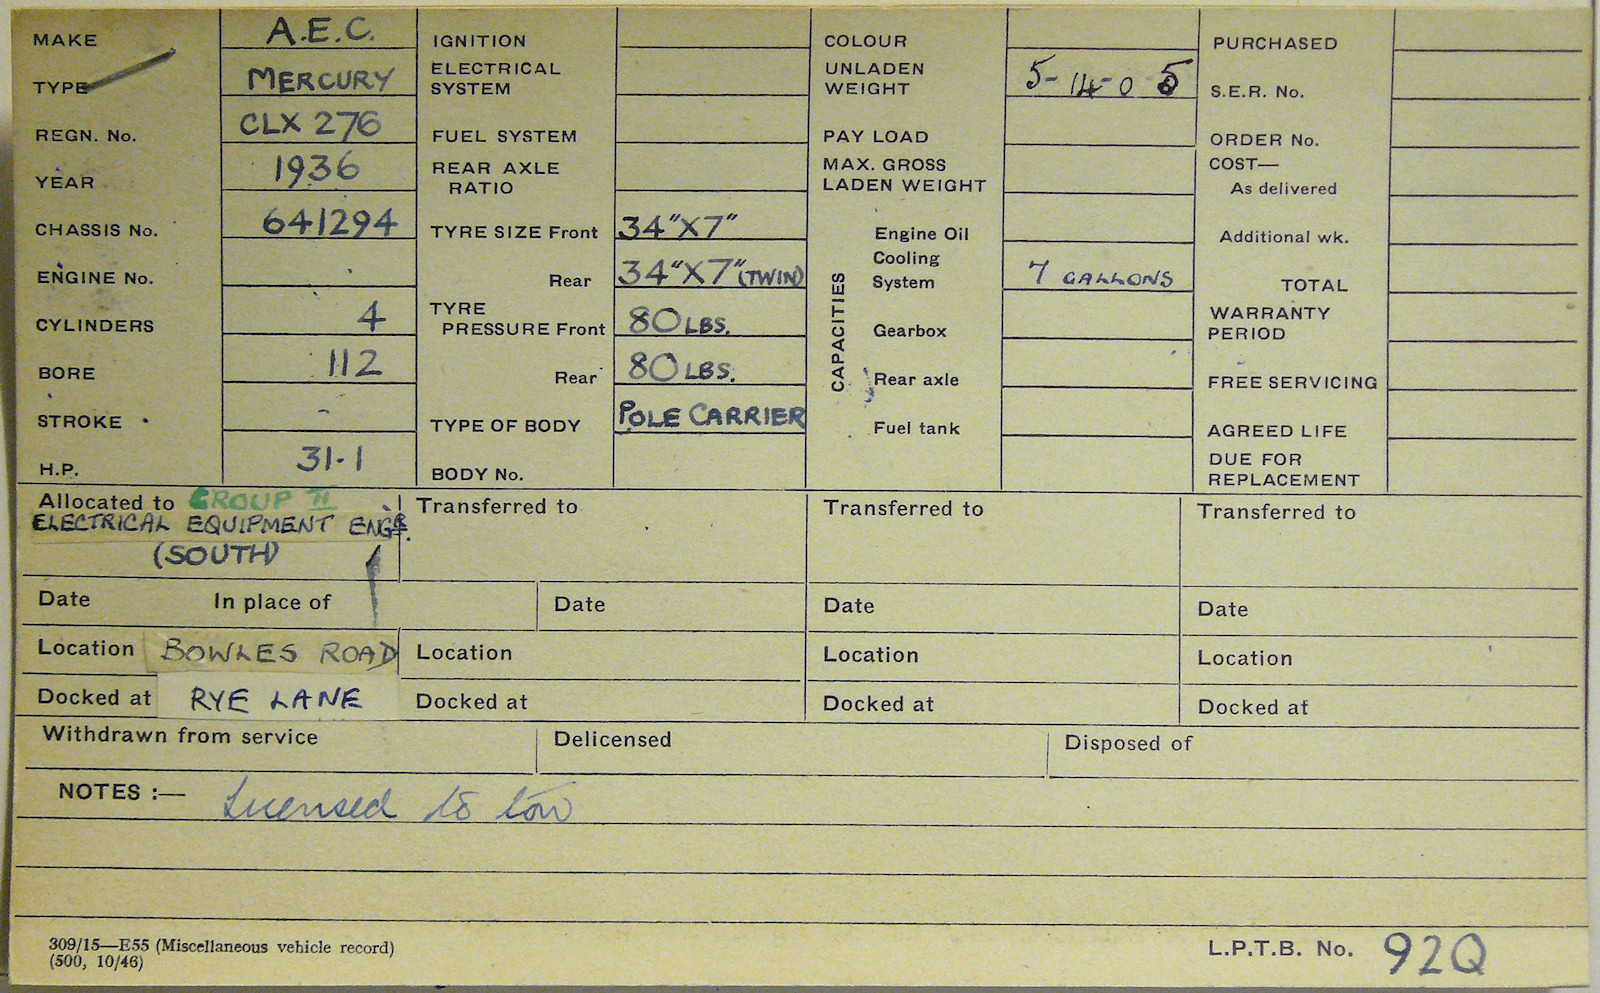 MAKE A.E.C.
TYPE MERCURY
REGN. No. CLX 276
YEAR 1936
CHASSIS No. 641294
ENGINE No.
CYLINDERS 4
BORE 112
STROKE -
H.P. 31·1
IGNITION
ELECTRICAL
SYSTEM
FUEL SYSTEM
REAR AXLE
RATIO
TYRE SIZE Front 34"X7"
Rear 34"X7"(TWIN)
TYRE
PRESSURE Front 80 LBS.
Rear 80 LBS.
TYPE OF BODY POLE CARRIER
BODY No.
COLOUR
UNLADEN
WEIGHT 5-14-0
PAY LOAD
MAX. GROSS
LADEN WEIGHT
CAPACITIES
Engine Oil
Cooling
System 7 GALLONS
Gearbox
Rear axle
Fuel tank
PURCHASED
S.E.R. No.
ORDER No.
COST—
As delivered
Additional wk.
TOTAL
WARRANTY
PERIOD
FREE SERVICING
AGREED LIFE
DUE FOR
REPLACEMENT
Allocated to GROUP II
ELECTRICAL EQUIPMENT ENGR.
(SOUTH)
Date In place of
Location BOWLES ROAD
Docked at RYE LANE
Transferred to
Date
Location
Docked at
Transferred to
Date
Location
Docked at
Transferred to
Date
Location
Docked at
Withdrawn from service Delicensed Disposed of
NOTES :— Licensed to tow
309/15—E55 (Miscellaneous vehicle record)
(500, 10/46)
L.P.T.B. No. 92Q